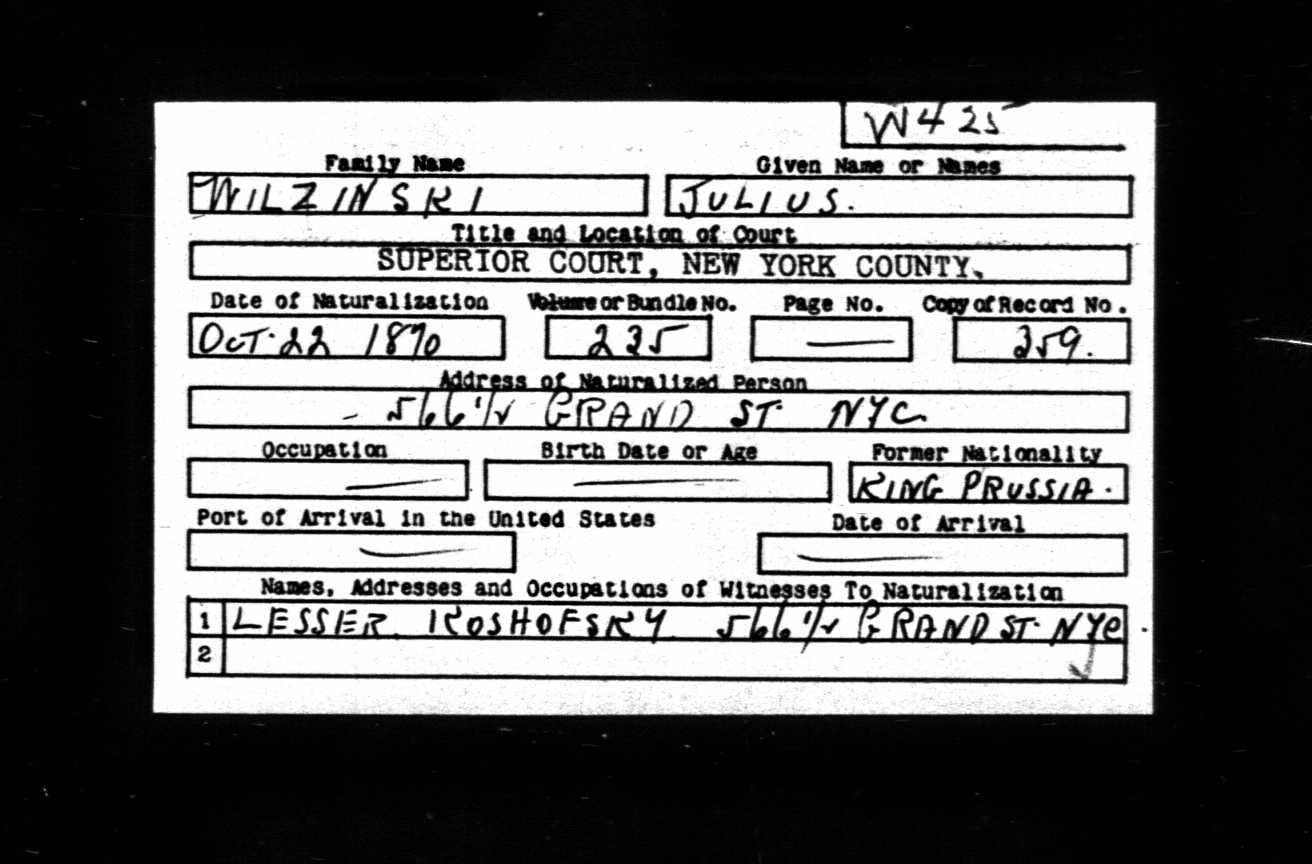 W425
Family Name Given Name or Names
WILZINSKI JULIUS.
Title and Location of Court
SUPERIOR COURT, NEW YORK COUNTY.
Date of Naturalization Volume or Bundle No. Page No. Copy of Record No.
OCT. 22 1870 235 — 359.
Address of Naturalized Person
- 566 1/2 GRAND ST. NYC
Occupation Birth Date or Age Former Nationality
— — KING PRUSSIA.
Port of Arrival in the United States Date of Arrival
— —
Names, Addresses and Occupations of Witnesses To Naturalization
1 LESSER KOSHOFSKY 566 1/2 GRAND ST. NYC
2